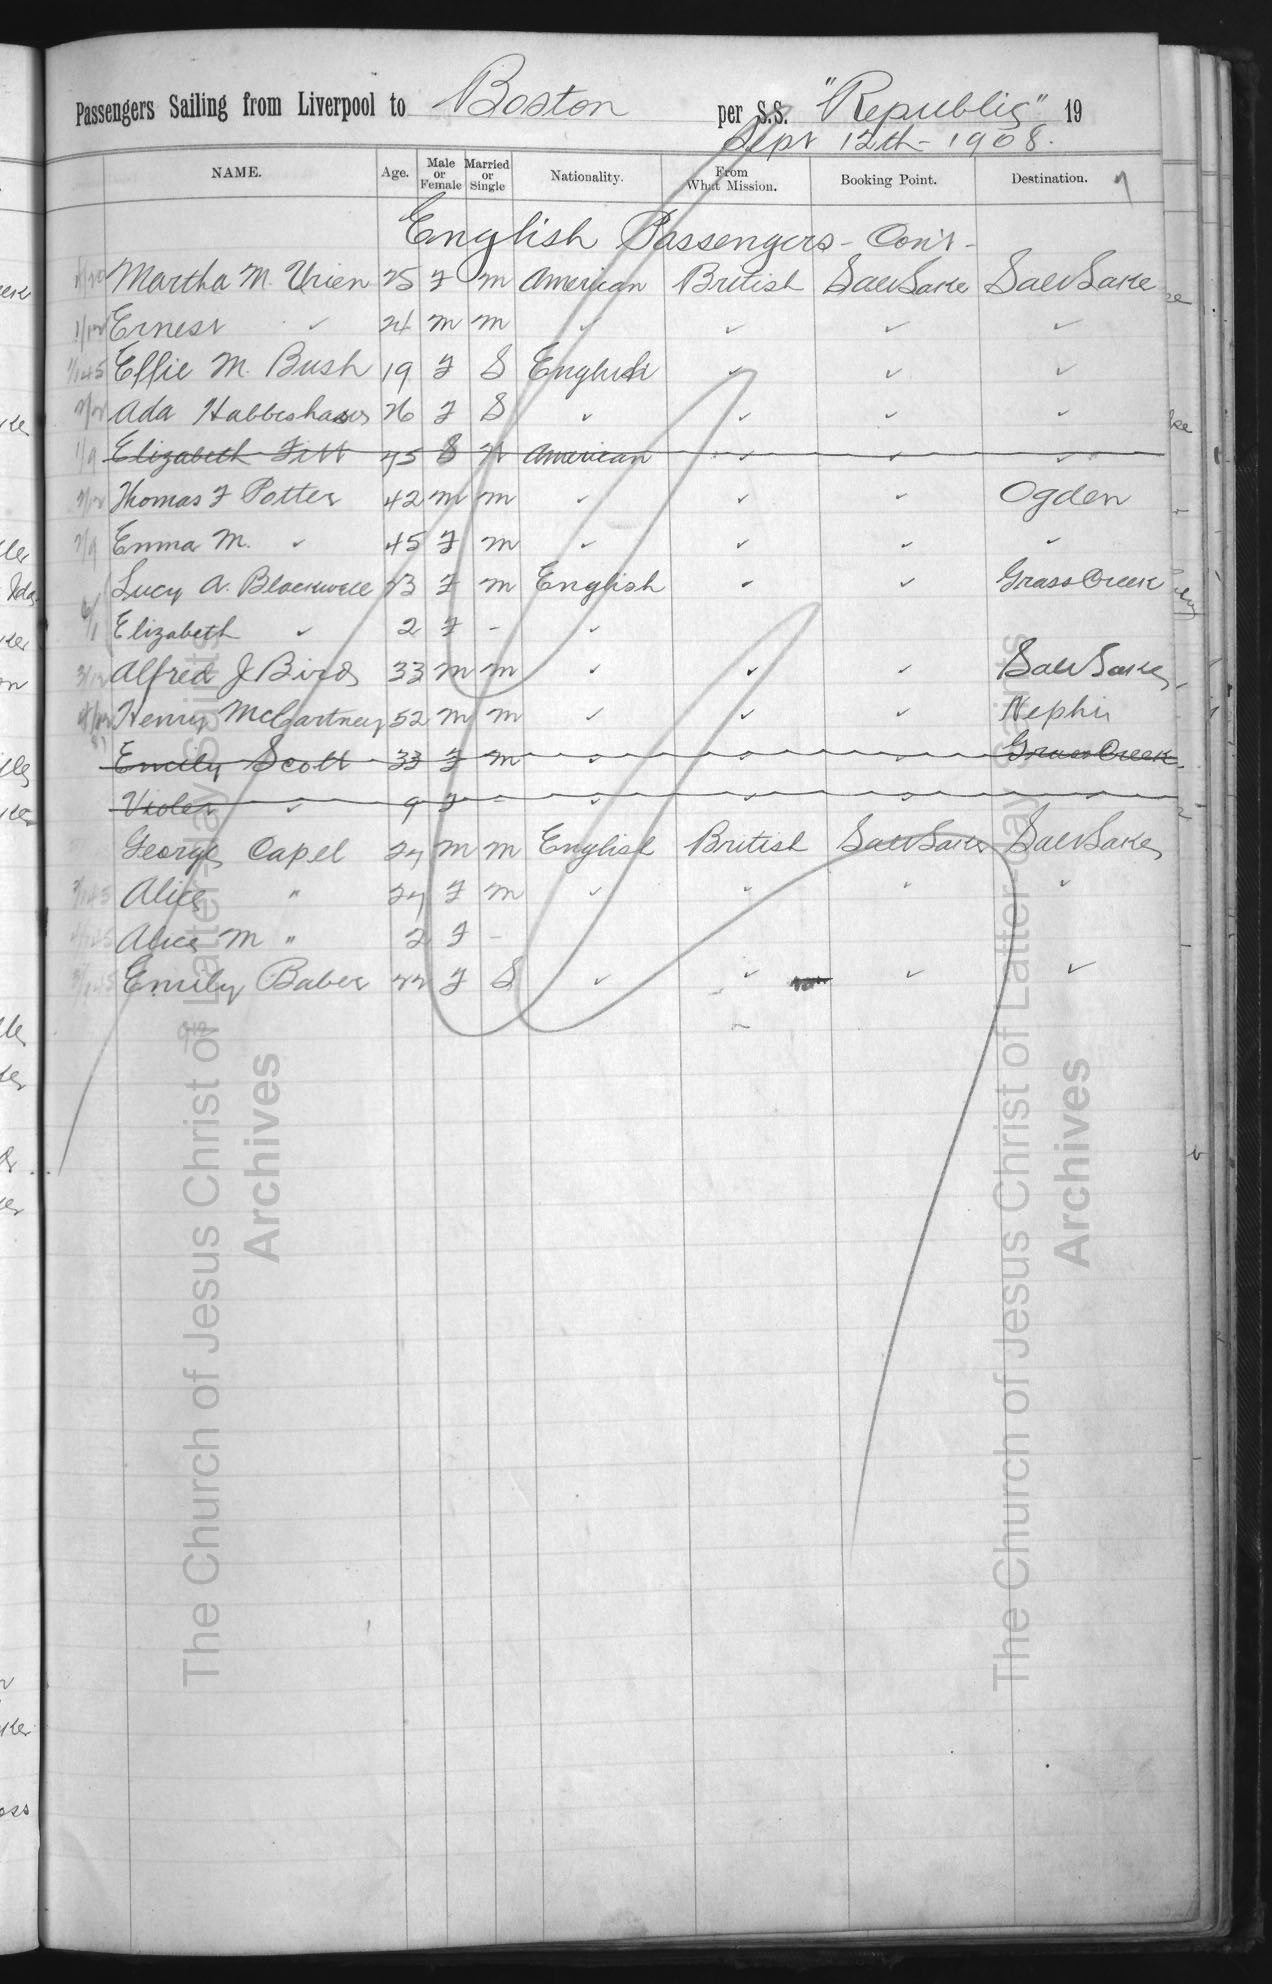 Passengers Sailing from Liverpool to Boston per S.S. "Republic" 19
Sept 12th - 1908.
NAME. Age. Male or Female Married or Single Nationality. From What Mission. Booking Point. Destination.
English Passengers - Con't -
Martha M. Urien 25 F m American British Salt Lake Salt Lake
Ernest ✓ 24 m m ✓ ✓ ✓ ✓
Effie M. Bush 19 F S English ✓ ✓ ✓
Ada 26 F S ✓ ✓ ✓ ✓
Elizabeth Fitt 45 American ✓ ✓ ✓
Thomas F Potter 42 m m ✓ ✓ ✓ Ogden
Emma M. ✓ 45 F m ✓ ✓ ✓ ✓
Lucy A. Blackwell 23 F m English ✓ ✓ Grass Creek
Elizabeth ✓ 2 F - ✓
Alfred J Bird 33 m m ✓ ✓ ✓ Salt Lake
Henry McCartney 52 m m ✓ ✓ ✓ Nephi
Emily Scott 33 F m ✓ ✓ ✓ Grass Creek
Violet ✓ 9 F - ✓ ✓ ✓ ✓
George Capel 24 m m English British Salt Lake Salt Lake
Alice " 24 F m ✓ ✓ ✓ ✓
Alice M " 2 F -
Emily Baber 22 F S ✓ ✓ ✓ ✓
The Church of Jesus Christ of Latter-day Saints
Archives
The Church of Jesus Christ of Latter-day Saints
Archives